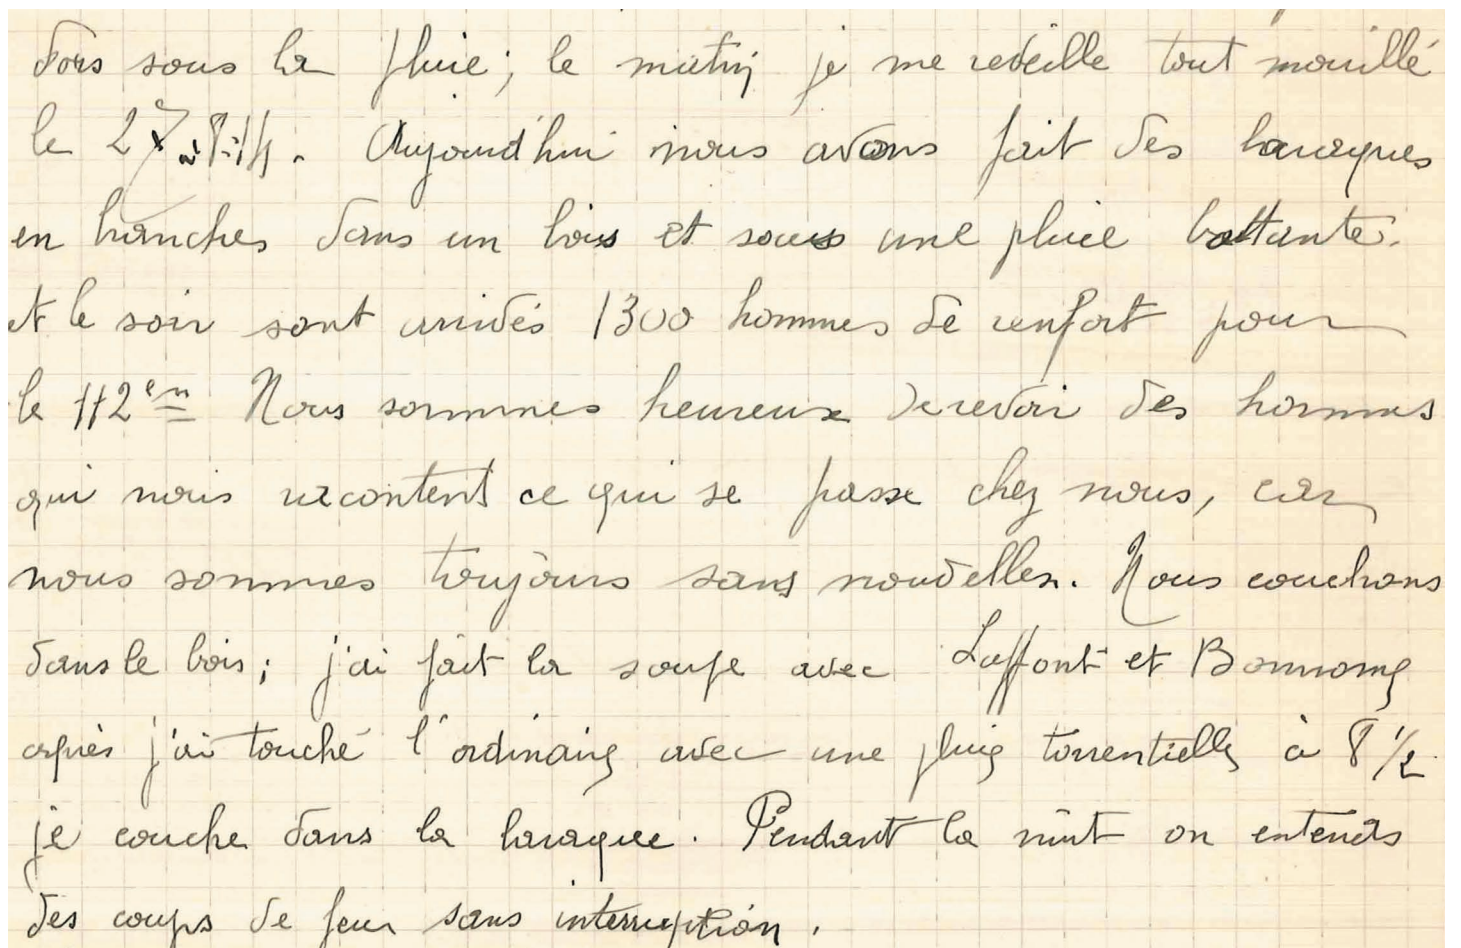 dors sous la pluie; le matin je me reveille tout mouillé
le 27-8-14. Aujourd'hui nous avons fait des baraques
en branches dans un bois et sous une pluie battante.
et le soir sont arrivés 1300 hommes de renfort pour
le 112em Nous sommes heureux de revoir des hommes
qui nous racontent ce qui se passe chez nous, car
nous sommes toujours sans nouvelles. Nous couchons
dans le bois; j'ai fait la soupe avec Laffont et
après j'ai touché l'ordinaire avec une pluie torrentielle à 8 1/2
je couche dans la baraque. Pendant la nuit on entends
des coups de feu sans interruption.